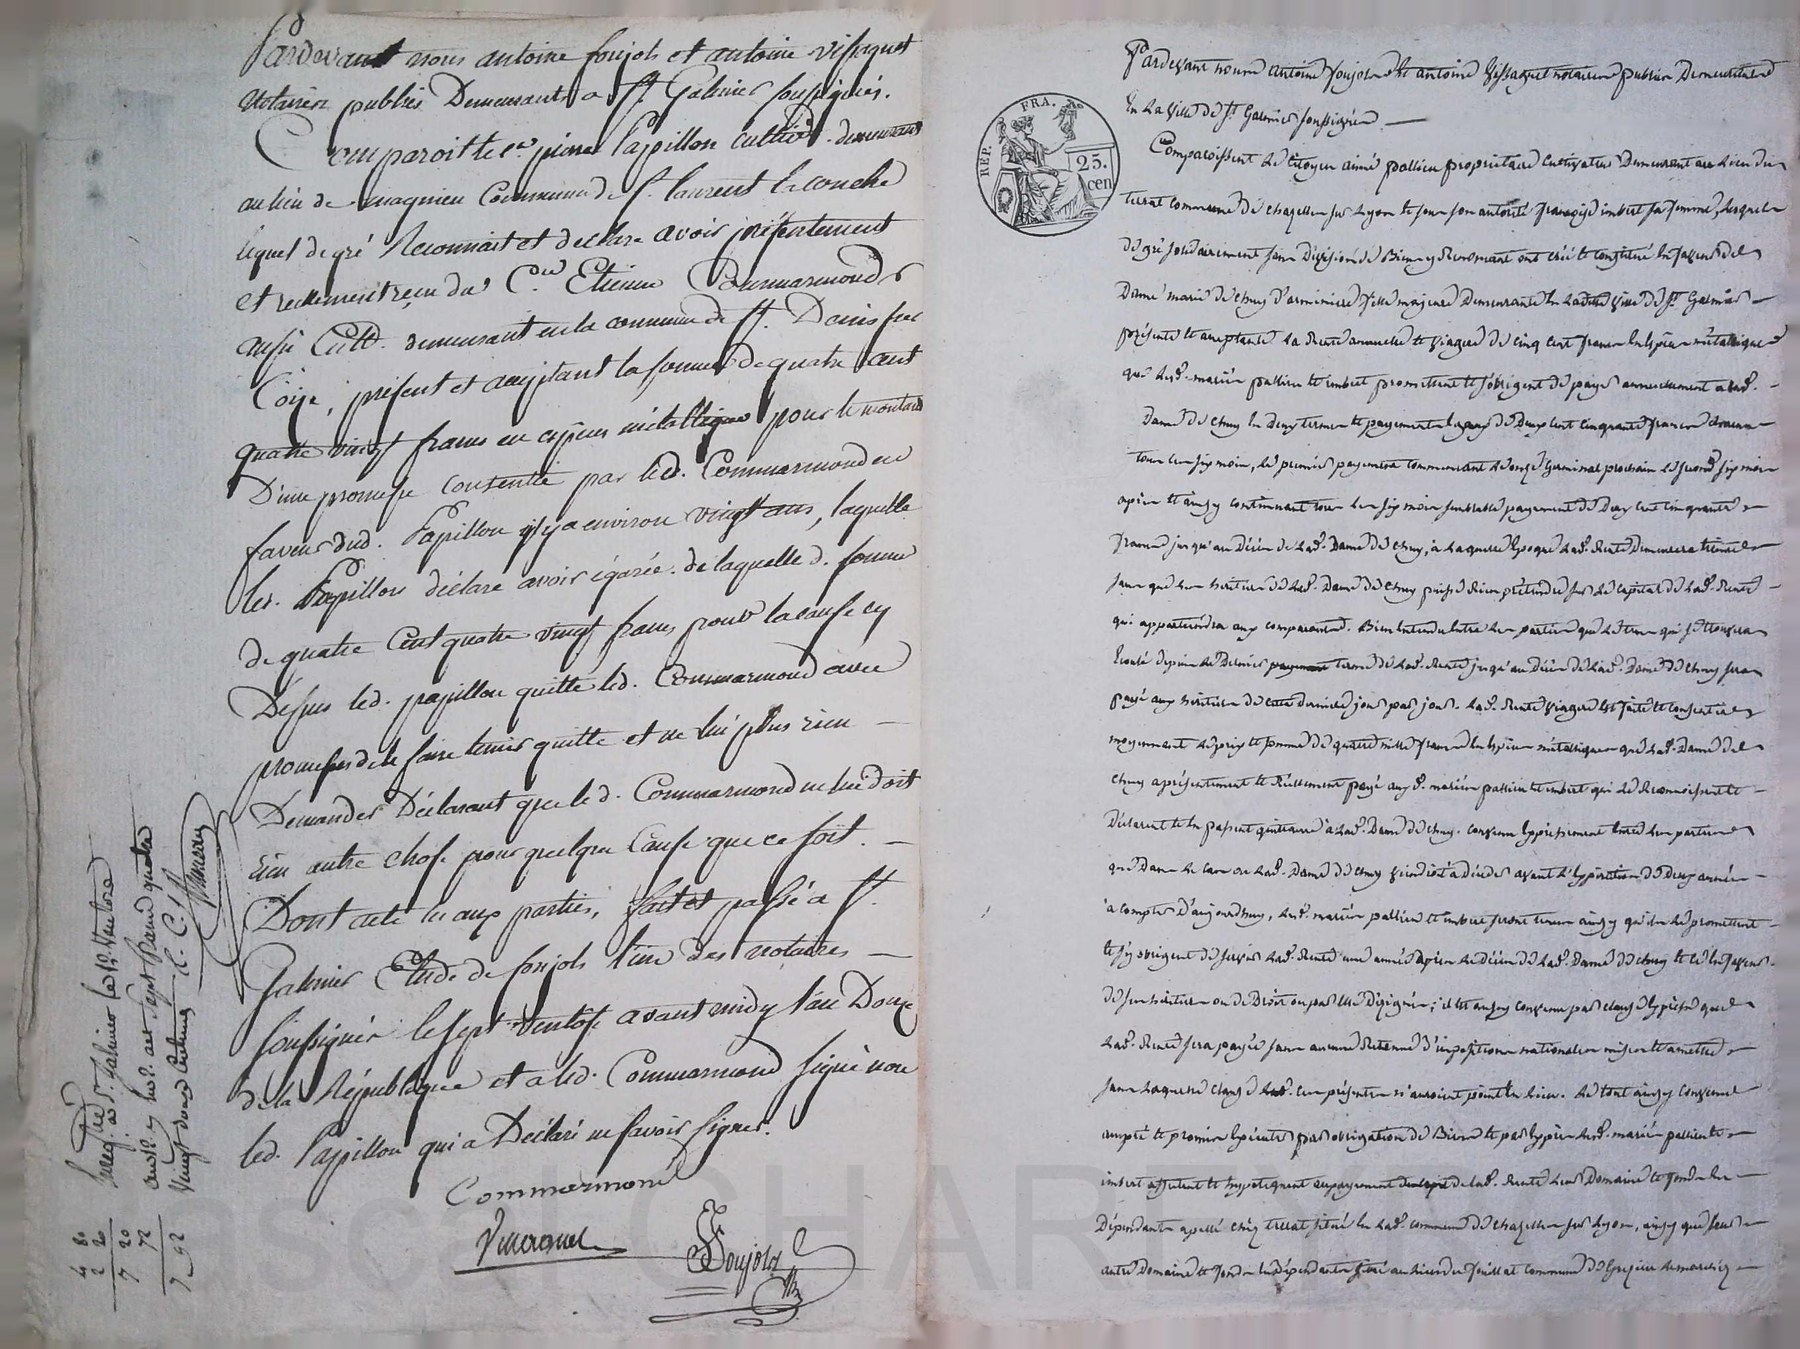 Pardevant nous antoine foujols et antoine vissaguet
Notaires publics Demeurants a St. Galmier soussignés.
Comparoit le c.en pierre Papillon cultiv. demeurant
au lieu de magnieu Commune de St. laurent la conche
lequel de gré Reconnait et declare avoir présentement
et réellement reçu du C.en Etienne Commarmond
aussi Cultr. demeurant en la commune de St. Denis sur
Coise, présent et acceptant la somme de quatre cent
quatre vingt francs en espèces métallique pour le montant
D'une promesse consentie par led. Commarmond en
faveur dud. Papillon il y a environ vingt ans, laquelle
led. Papillon déclare avoir égarée. de laquelle d. somme
de quatre Cent quatre vingt francs pour la cause cy
Dessus led. papillon quitte led. Commarmond avec
promesses de le faire tenir quitte et ne lui plus rien
Demander Déclarant que led. Commarmond ne lui doit
rien autre chose pour quelque Cause que ce soit.
Dont acte lu aux parties, fait et passé a St.
Galmier Etude de foujols l'un des notaires
soussignés le sept ventose avant midy l'an Douze
de la République et a led. Commarmond signé non
led. Papillon qui a Déclaré ne savoir signer.
Commarmond
Foujols
Enreg. à St. Galmier le 12 Ventose
an 12 reçu sept francs quatre
Vingt douze centimes
4 80
2 40
7 20
72
7 92
Pardevant nous Antoine foujols et antoine vissaguet notaires publics Demeurants
En la ville de St. Galmier soussignés
REP. FRA.
25.
cen
Comparoissent le Citoyen aimé pallieu propriétaire cultivateur Demeurant au lieu du
terrat commune de chazelles sur Lyon et sous son autorité françoise imbert sa femme, lesquels
de gré solidairement sans Division de Biens y Renonçant ont créé et constitué en faveur de
Dame marie de Chuy d'arminière fille majeure Demeurante en ladite ville de St. Galmier
présente et acceptante la Rente annuelle et viagère de cinq cent francs en espèces métalliques
que lesd. mariés pallieu et imbert promettent et s'obligent de payer annuellement a lad.
Dame de Chuy en deux termes et payements égaux de Deux cent cinquante francs chacun
tous les six mois, le premier payement commençant le onze Germinal prochain le second six mois
après et ainsy continuant tous les six mois semblable payement de Deux cent cinquante
francs jusqu'au Décès de lad. Dame de Chuy, à laquelle Epoque lad. Rente Demeurera éteinte
sans que les héritiers de lad. Dame de Chuy puisse Rien prétendre sur le capital de lad. Rente
qui appartiendra aux comparants. Bien entendu entre les parties que le tems qui se trouvera
Ecoulé depuis le Dernier terme de lad. Rente jusqu'au Décès de lad. Dame de Chuy sera
payé aux héritiers de cette dernière jour par jour. lad. Rente viagère est faite et consentie
moyennant le prix et somme de quatre mille francs en espèces métalliques que lad. Dame de
Chuy a présentement et Réellement payé auxd. mariés pallieu et imbert qui le Reconnoissent et
Déclarent et en passent quittance à lad. Dame de Chuy. Convenu expressément entre les parties
que Dans le cas ou lad. Dame de Chuy viendroit à décéder avant l'expiration de Deux années
à compter d'aujourdhuy, lesd. mariés pallieu et imbert seront tenus ainsy qu'ils le promettent
et s'y obligent de servir lad. Rente une année après le Décès de lad. Dame de Chuy et ce en faveur
de ses héritiers ou de Droit ou par Elle Désignés; il est aussy convenu par clause expresse que
lad. Rente sera payée sans aucune Retenue d'imposition nationales mises et a mettre
sans laquelle clause les présentes n'auroient point eu lieu. le tout ainsy convenu
accepté et promis Exécuter par obligation de Biens et par exprès lesd. mariés pallieu et
imbert affectent et hypothèquent au payement de lad. Rente leurs Domaine et fonds en
Dépendants appellé chez terrat situé en lad. commune de chazelles sur Lyon, ainsy que leur
autre Domaine et fonds en dépendants situé au lieu de fouillat commune de Grezieu le marché